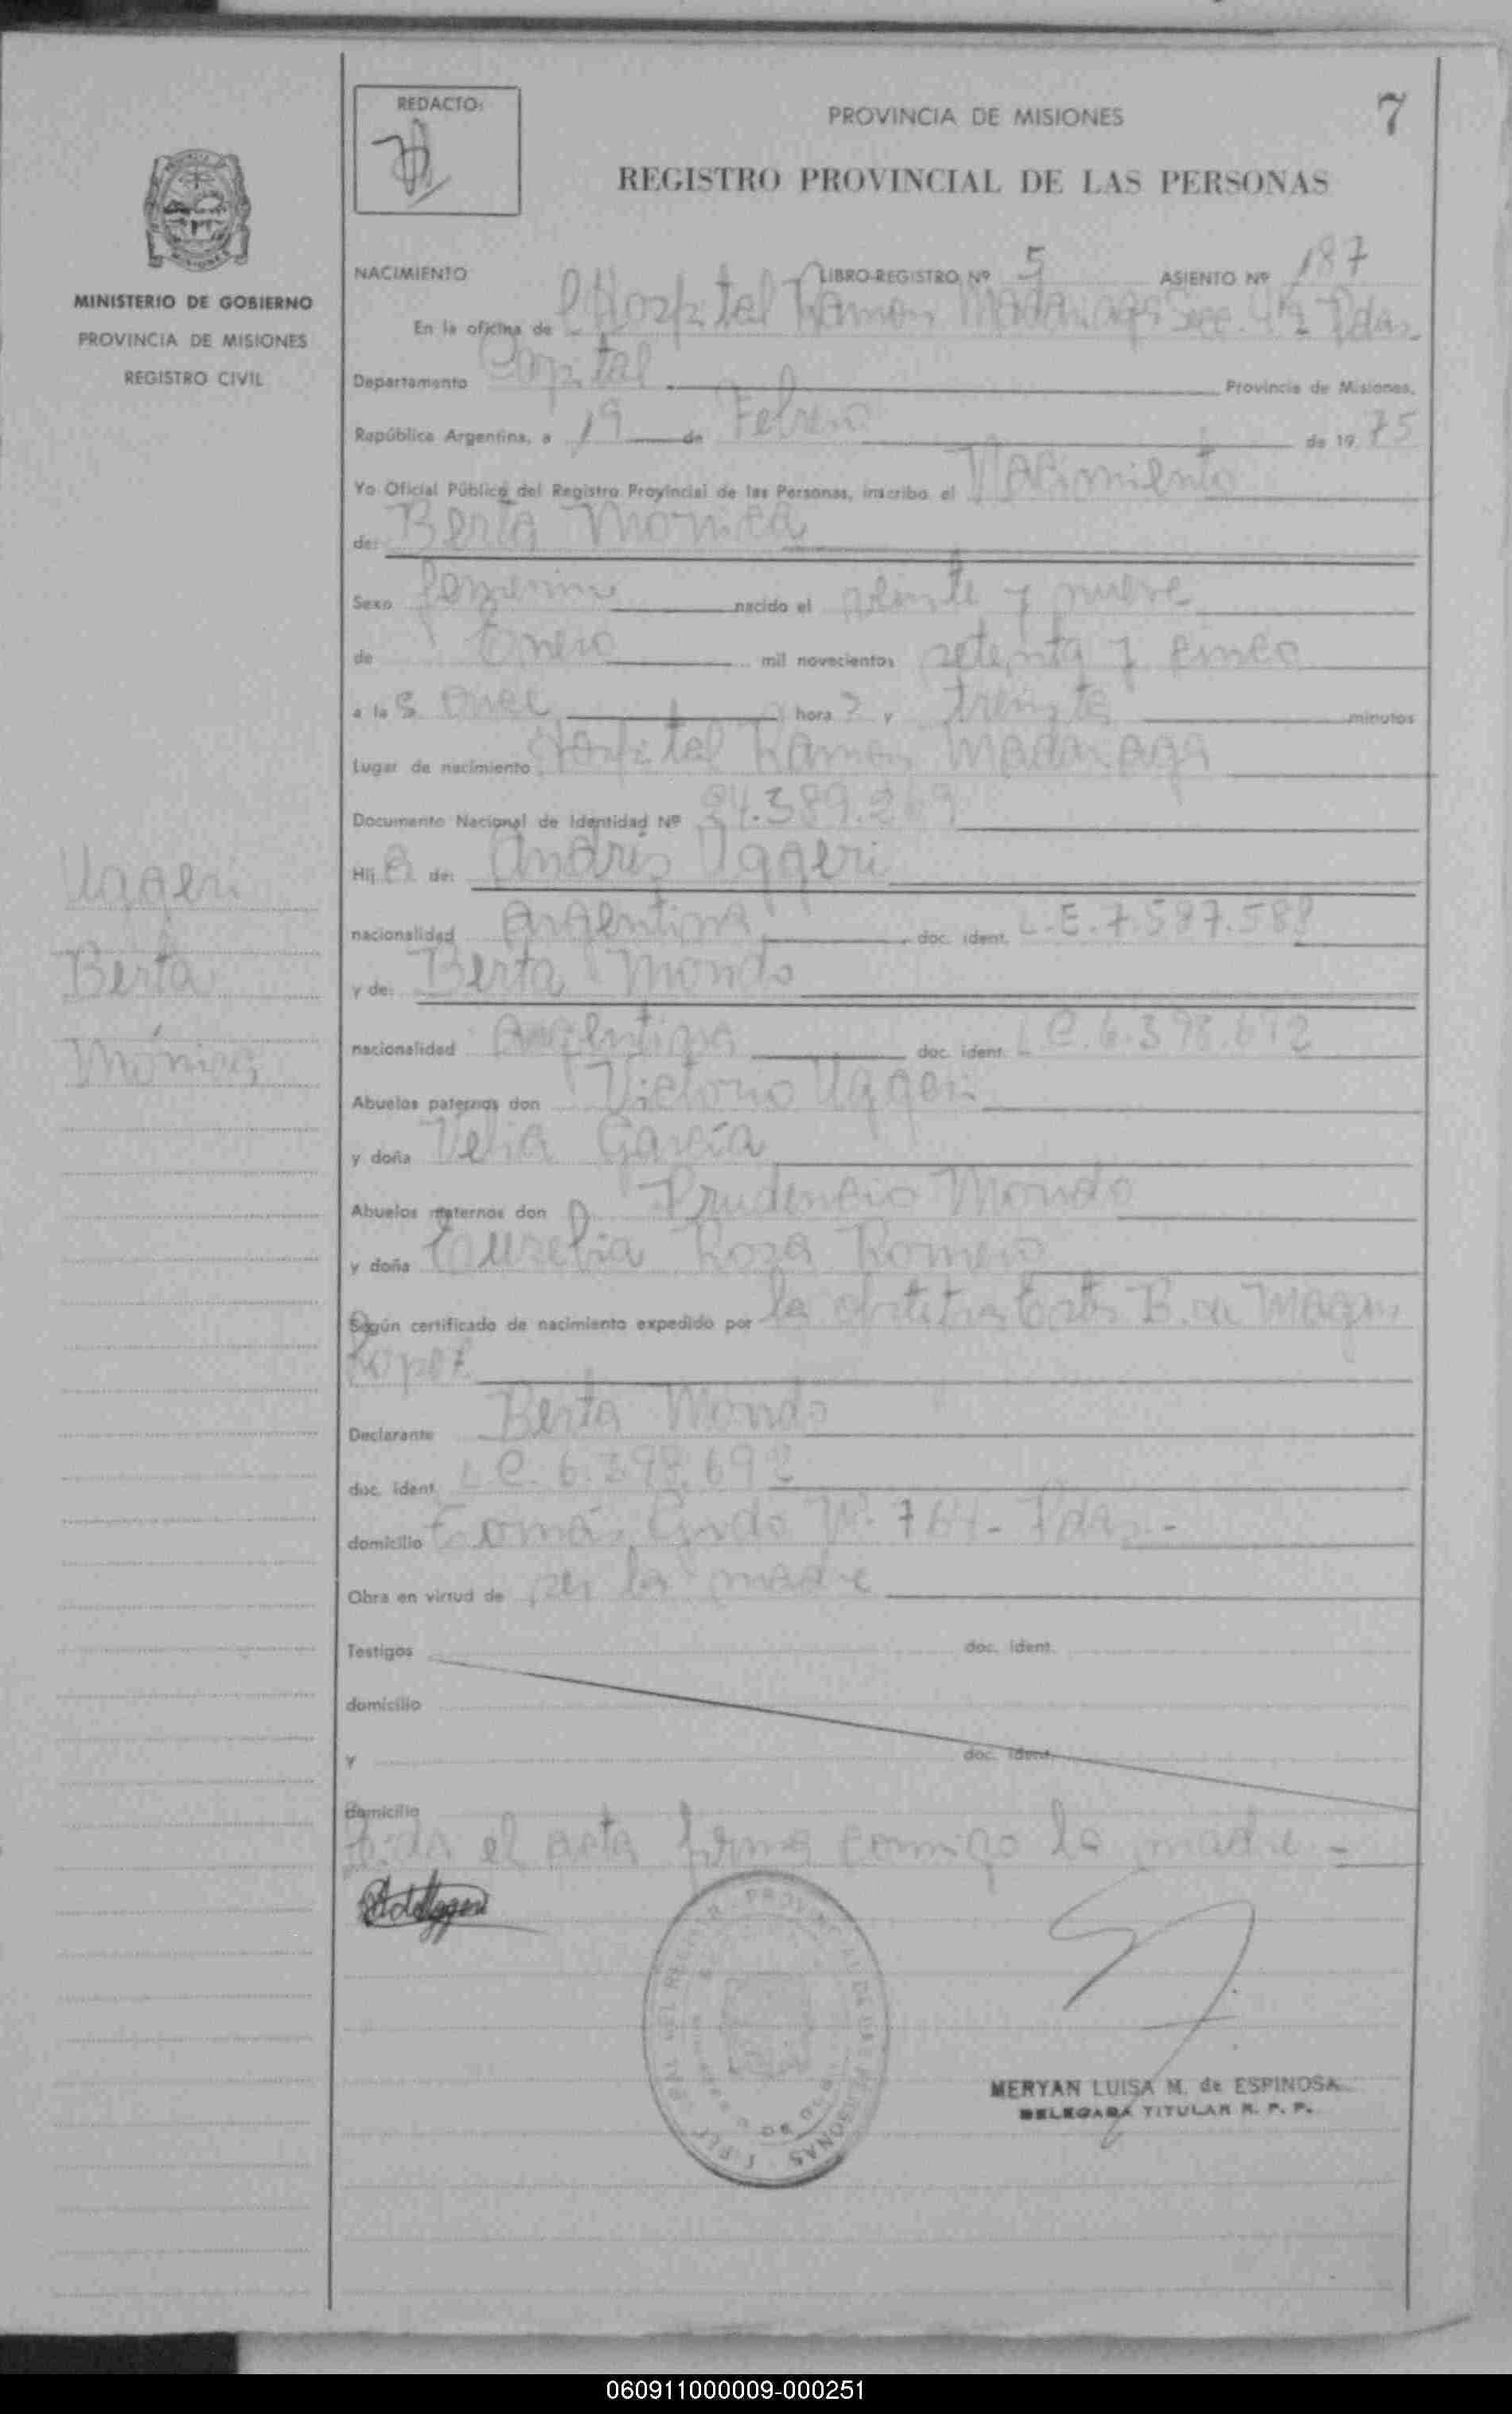 REDACTO:
PROVINCIA DE MISIONES
7
REGISTRO PROVINCIAL DE LAS PERSONAS
MINISTERIO DE GOBIERNO
PROVINCIA DE MISIONES
REGISTRO CIVIL
NACIMIENTO LIBRO-REGISTRO Nº 5 ASIENTO Nº 187
En la oficina de Hospital Ramon Madariaga Secc. 4ta Pdas.
Departamento Capital Provincia de Misiones.
República Argentina, a 19 de Febrero de 1975
Yo Oficial Público del Registro Provincial de las Personas, inscribo el Nacimiento
de: Berta Monica
Sexo femenino nacido el veinte y nueve
de Enero mil novecientos setenta y cinco
a las once hora y treinta minutos
Lugar de nacimiento Hospital Ramon Madariaga
Documento Nacional de Identidad Nº 24.389.269
Hija de: Andrés Uggeri
nacionalidad Argentina doc. ident. L.E. 7.587.588
y de: Berta Mondo
nacionalidad Argentina doc. ident. L.C. 6.398.692
Abuelos paternos don Victorio Uggeri
y doña Velia García
Abuelos maternos don Prudencio Mondo
y doña Eusebia Rosa Romero
Según certificado de nacimiento expedido por la obstetra B. de
Lopez
Declarante Berta Mondo
doc. ident. L.C. 6.398.692
domicilio Tomás Guido Nº. 764 - Pdas -
Obra en virtud de ser la madre
Testigos doc. ident.
domicilio
y doc. ident.
domicilio
Leída el acta firma conmigo la madre -
Uggeri
Berta
Mónica
MERYAN LUISA M. de ESPINOSA
DELEGADA TITULAR R. P. P.
060911000009-000251